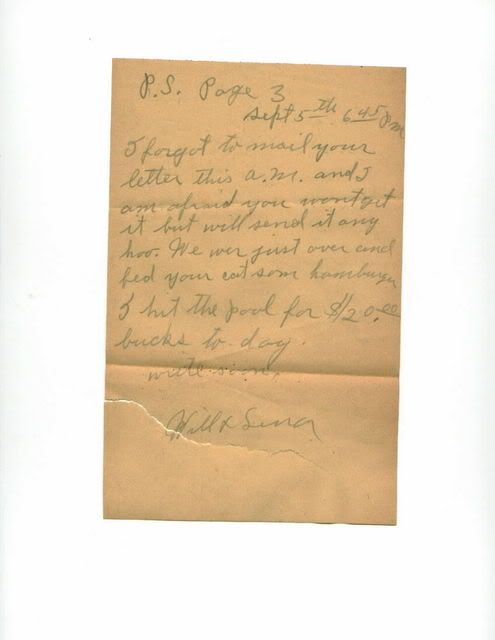 P.S. Page 3
Sept 5th 6 45 Pm
I forgot to mail your
letter this a.m. and I
am afraid you wont get
it but will send it any
hoo. We wer just over and
fed your cat som hamburger
I hit the pool for $120.00
bucks to day.
write soon.
Will &